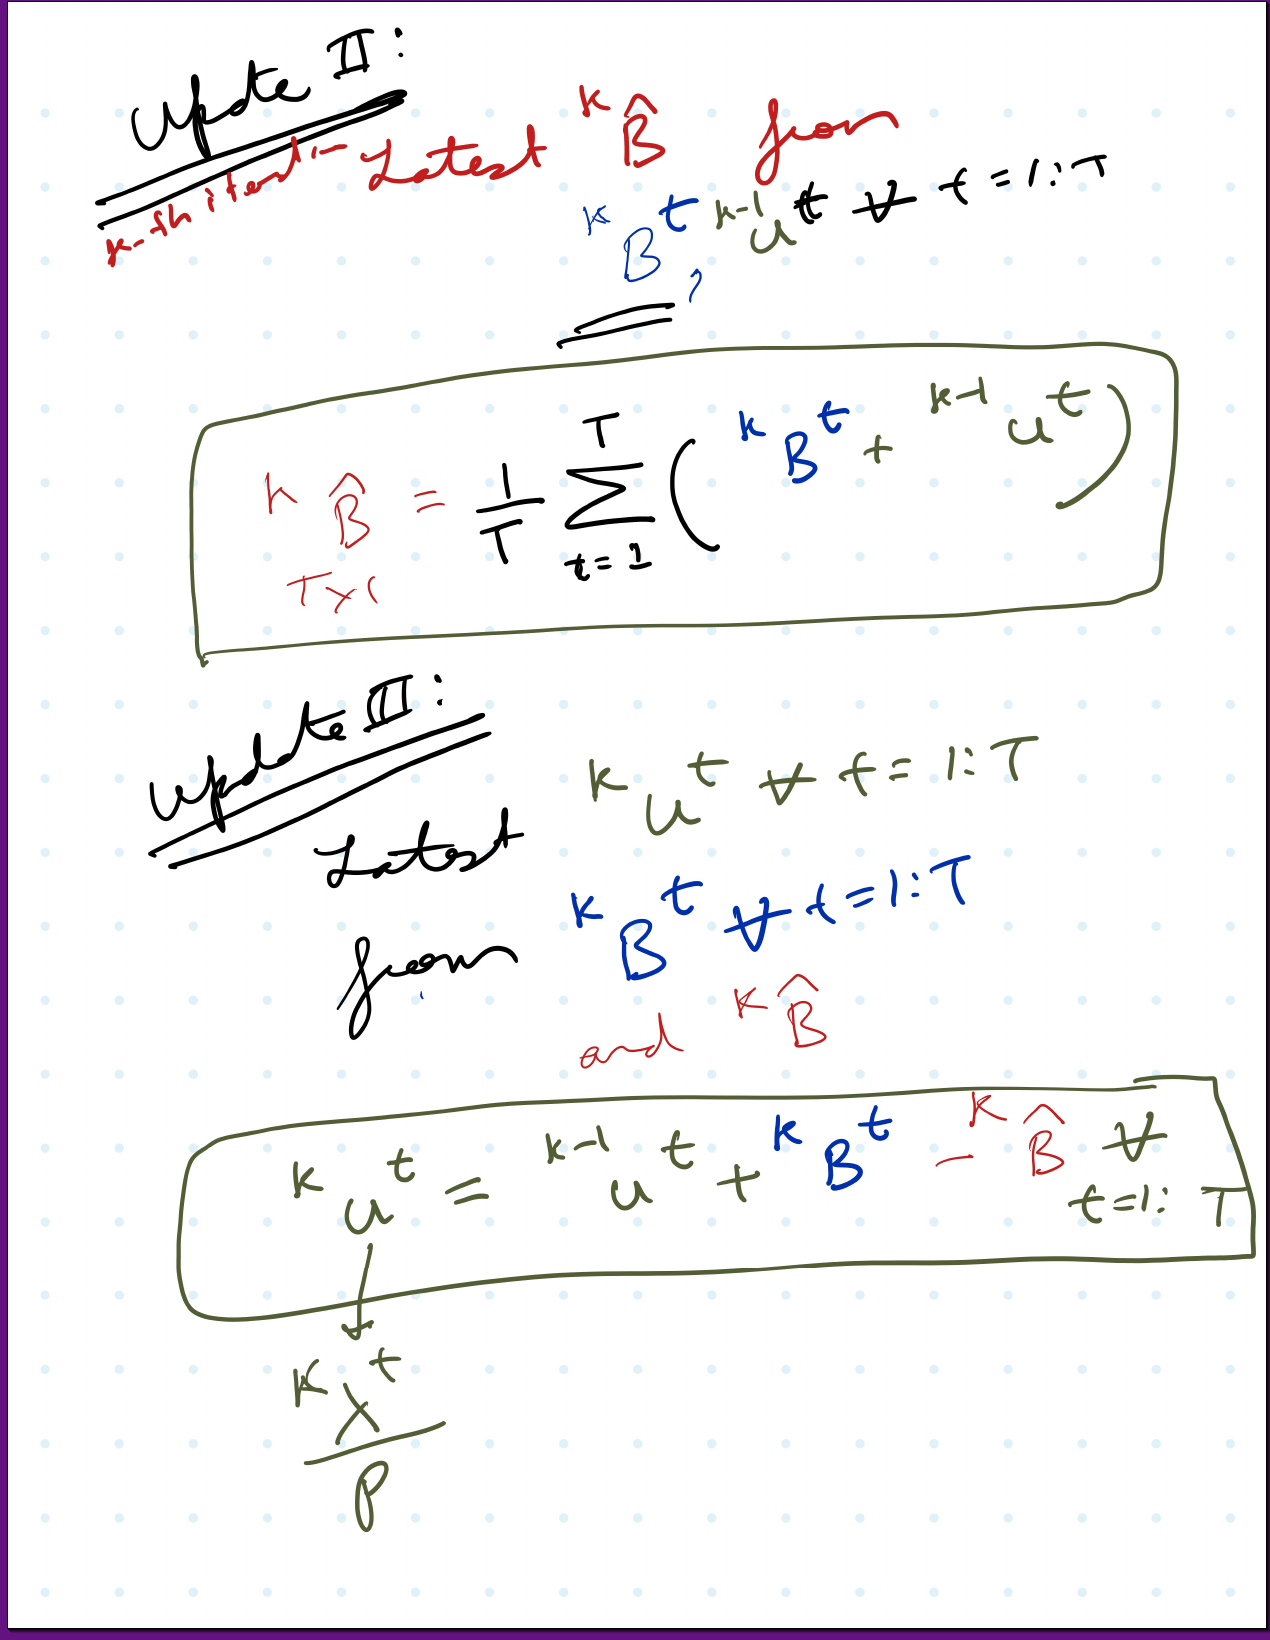 Update II:
k-th iterd:- Latest ᵏB̂ from
ᵏBᵗ, ᵏ⁻¹uᵗ ∀ t=1:T
ᵏB̂ = 1/T Σ_{t=1}^{T} ( ᵏBᵗ + ᵏ⁻¹uᵗ )
T×1
Update III:
Latest ᵏuᵗ ∀ t=1:T
from ᵏBᵗ ∀ t=1:T
and ᵏB̂
ᵏuᵗ = ᵏ⁻¹uᵗ + ᵏBᵗ - ᵏB̂ ∀
t=1: T
ᵏλᵗ
ρ